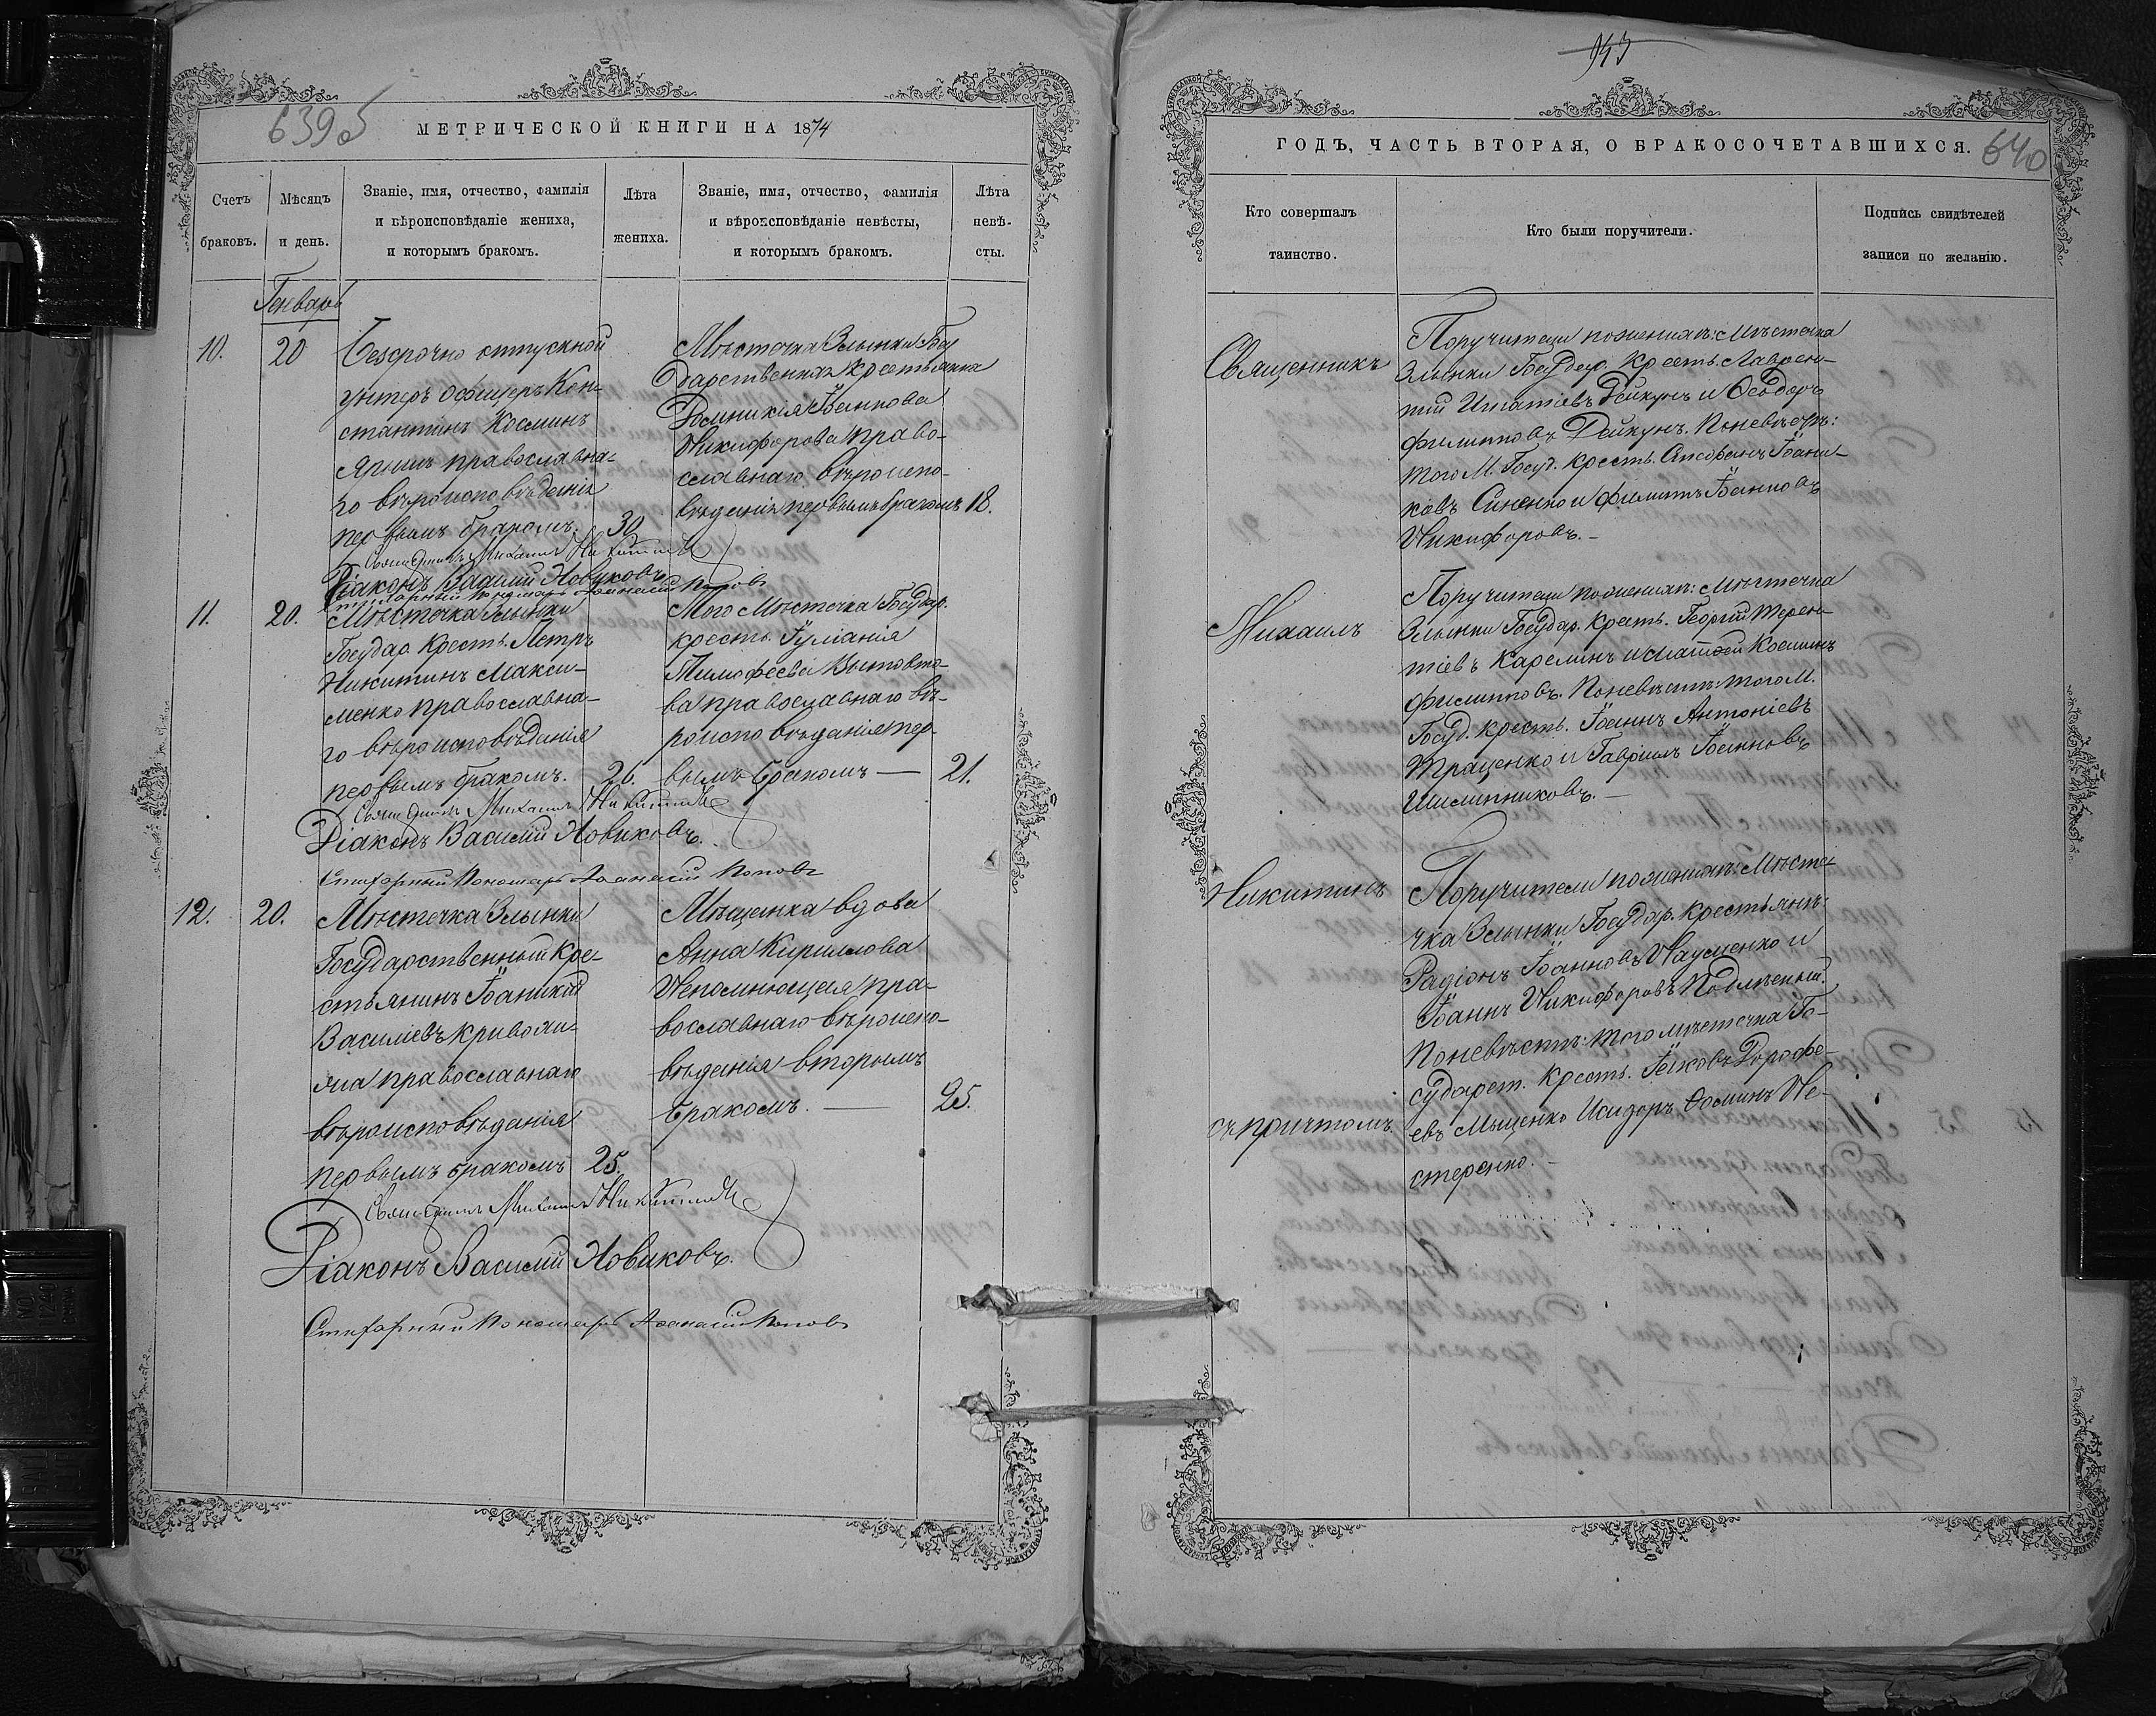 639
МЕТРИЧЕСКОЙ КНИГИ НА 1874
Счетъ браковъ.
Мѣсяцъ и день.
Званіе, имя, отчество, фамилія
и вѣроисповѣданіе жениха,
и которымъ бракомъ.
Лѣта
жениха.
Званіе, имя, отчество, фамилія
и вѣроисповѣданіе невѣсты,
и которымъ бракомъ.
Лѣта
невѣ-
сты.
Генварь
10.
20
Безсрочно отпускной
унтеръ офицеръ Кон-
стантинъ Косминъ
православна-
го вѣроисповѣданія
первымъ бракомъ.
30
Мѣстечка Злынки Госу
дарственная крестьянка
Домникія Іоаннова
Никифорова право-
славнаго вѣроиспо-
вѣданія первымъ бракомъ
18.
Священникъ Михаилъ Никитинъ
Діаконъ Василій Новиковъ
Пономарь Аѳанасій Поповъ
11.
20.
Мѣстечка Злынки
Государ. Крест. Петръ
Никитинъ Макси-
менко православна-
го вѣроисповѣданія
первымъ бракомъ.
26.
Того Мѣстечка Государ.
крест. Іуліанія
Тимофеева
ва православнаго вѣ-
роисповѣданія пер-
вымъ бракомъ —
21.
Священникъ Михаилъ Никитинъ
Діаконъ Василій Новиковъ.
Пономарь Аѳанасій Поповъ
12.
20.
Мѣстечка Злынки
Государственный кре-
стьянинъ Іоаникій
Василіевъ Криволи-
православнаго
вѣроисповѣданія
первымъ бракомъ
25.
Мѣщанка вдова
Анна Кириллова
Непомнющая пра-
вославнаго вѣроиспо-
вѣданія вторымъ
бракомъ. —
25.
Священникъ Михаилъ Никитинъ
Діаконъ Василій Новиковъ.
Пономарь Аѳанасій Поповъ
943
ГОДЪ, ЧАСТЬ ВТОРАЯ, О БРАКОСОЧЕТАВШИХСЯ.
640
Кто совершалъ
таинство.
Кто были поручители.
Подпись свидѣтелей
записи по желанію.
Священникъ
Поручители по женихѣ: Мѣстечка
Злынки Государ. Крест. Лаврен-
тій Игнатіевъ Дейкунъ и Ѳеодоръ
Филипповъ Дейкунъ. По невѣстѣ:
того М. Госуд. крест. Іоани-
Синенко и Филиппъ Іоанновъ
Никифоровъ. —
Михаилъ
Поручители по женихѣ: Мѣстечка
Злынки Государ. Крест. Георгій Терен-
тіевъ Карелинъ и Матѳей Косминъ
Филипповъ. По невѣстѣ: того М.
Госуд. Крест. Іоаннъ Антоніевъ
Траценко и Гавріилъ Іоанновъ
Шмыпниковъ. —
Никитинъ
Поручители по женихѣ: Мѣсте-
чка Злынки Государ. крестьянъ:
Радіонъ Іоанновъ Науменко и
Іоаннъ Никифоровъ
По невѣстѣ: того мѣстечка Го-
сударст. Крест. Іаковъ Дорофе-
евъ Мыценко Исидоръ Ѳоминъ Не-
стеренко. —
съ причтомъ